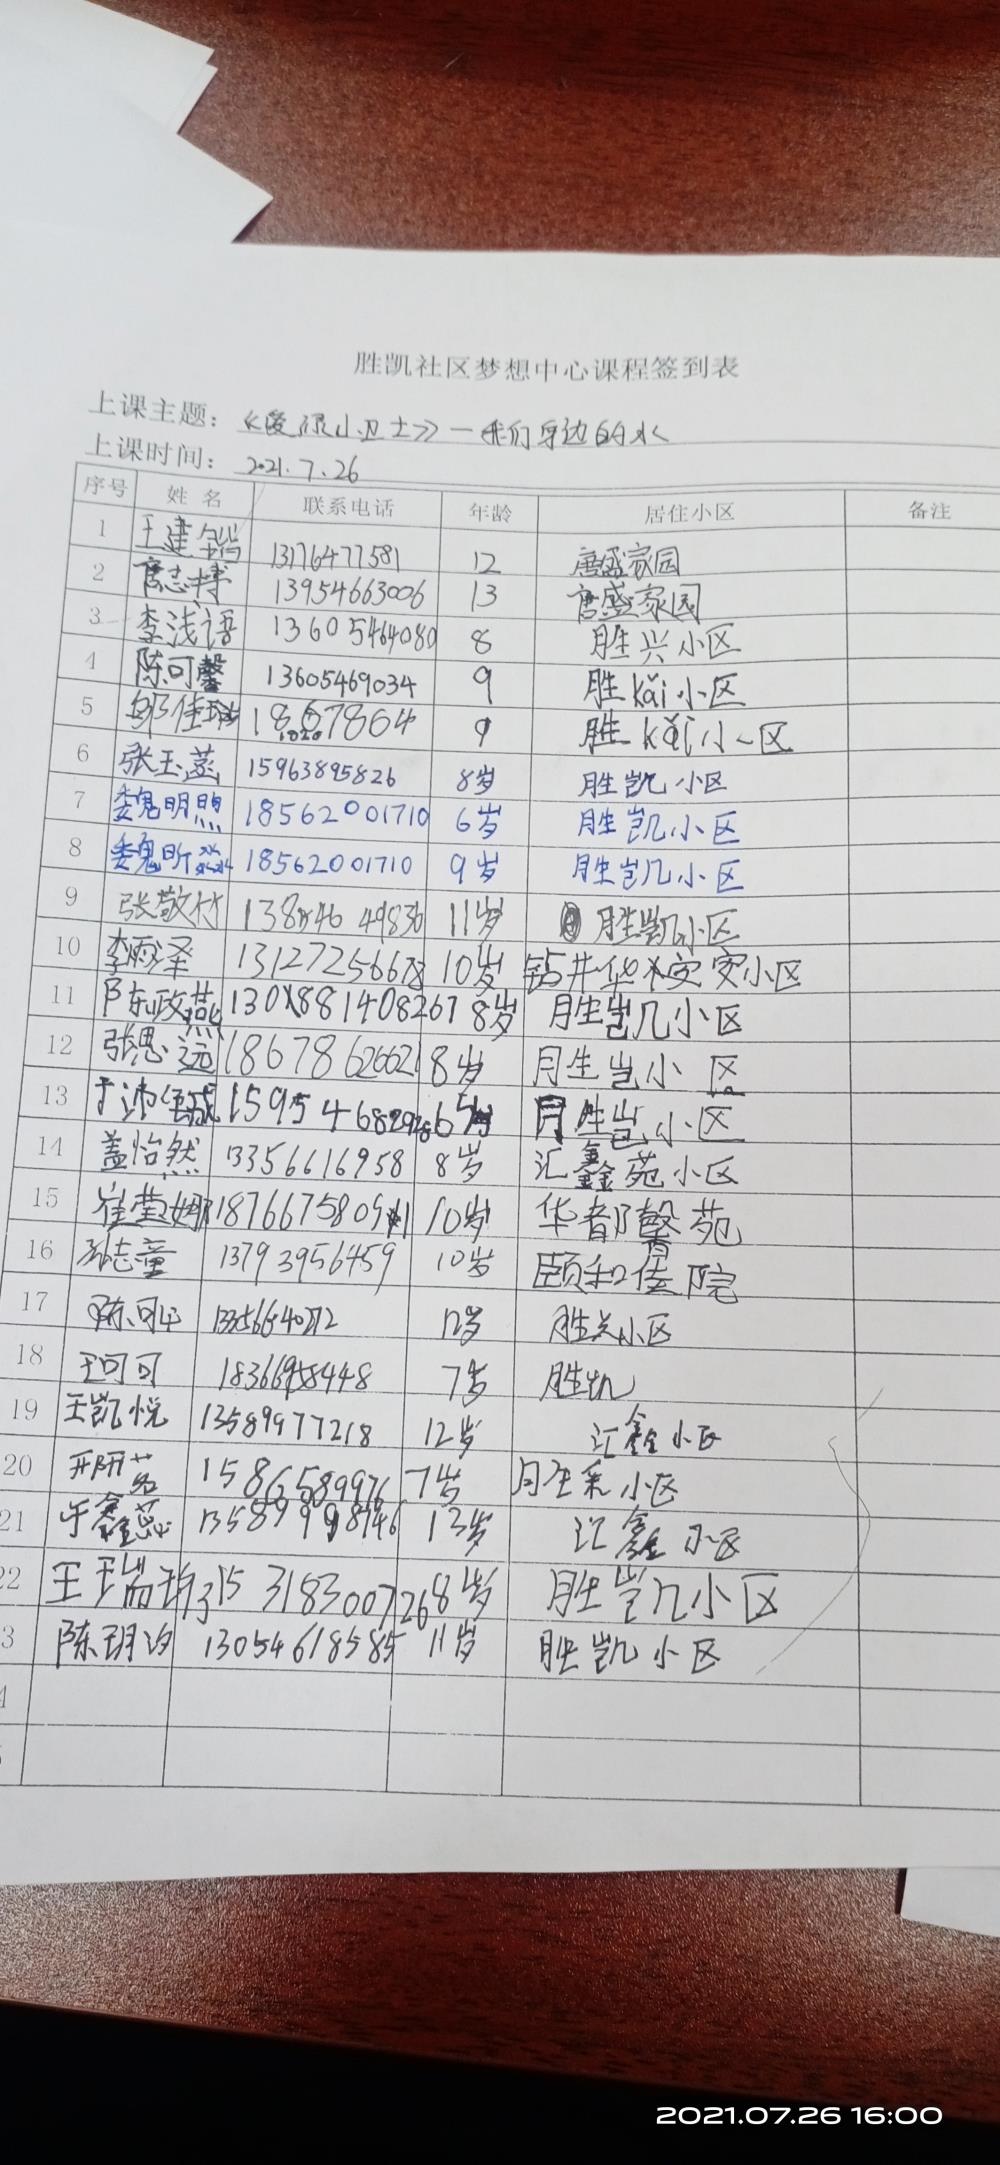 胜凯社区梦想中心课程签到表
上课主题：《爱绿小卫士》—我们身边的水
上课时间：2021.7.26
序号 姓名 联系电话 年龄 居住小区 备注
1 王建锴 13176477581 12 唐盛家园
2 高志博 13954663006 13 唐盛家园
3 李浅语 13605464080 8 胜兴小区
4 陈可馨 13605469034 9 胜kǎi小区
5 邹佳 9 胜kǎi小区
6 张玉蕊 15963895826 8岁 胜凯小区
7 魏明煦 18562001710 6岁 胜凯小区
8 魏昕 18562001710 9岁 胜凯小区
9 张敬竹 11岁 胜凯小区
10 李雨泽 10岁 钻井华小区
11 陈政燕 8岁 胜凯小区
12 张思远 18678626621 8岁 胜岂小区
13 于沛 胜岂小区
14 盖怡然 13356616958 8岁 汇鑫苑小区
15 崔莹娜 10岁 华都馨苑
16 孙志童 13793956459 10岁 颐和佳院
17 陈可 12岁 胜兴小区
18 王可可 18366958448 7岁 胜凯
19 王凯悦 13589977218 12岁 汇鑫小区
20 15865899976 7岁 小区
21 于鑫蕊 13岁 汇鑫小区
22 王瑞 8岁 胜凯小区
23 陈玥汐 13054618585 11岁 胜凯小区
2021.07.26 16:00